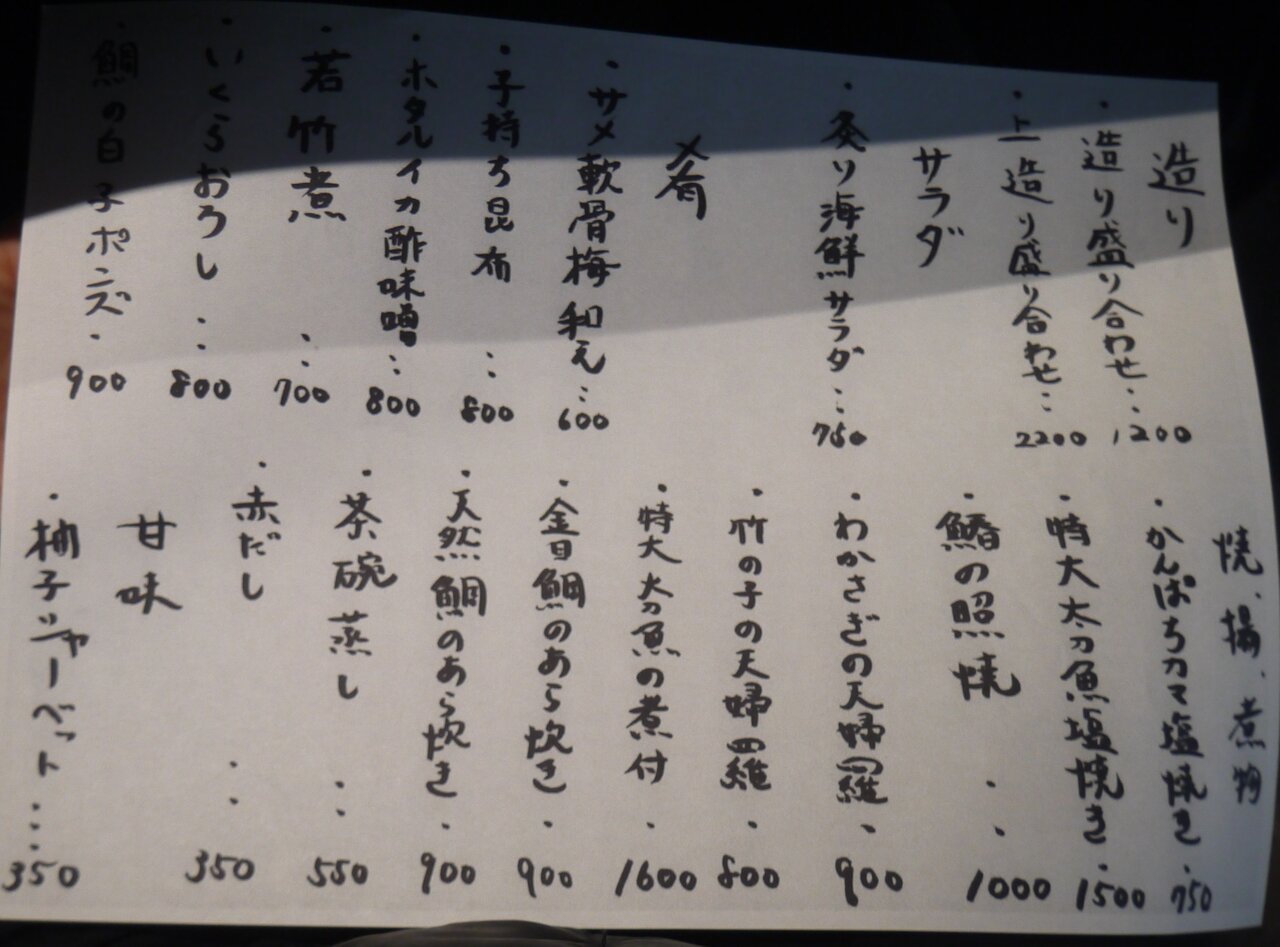 造り
・造り盛り合わせ‥1200
・上造り盛り合わせ‥2200
サラダ
・炙り海鮮サラダ‥750
肴
・サメ軟骨梅和え‥600
・子持ち昆布‥800
・ホタルイカ酢味噌‥800
・若竹煮‥700
・いくらおろし‥800
・鯛の白子ポンズ・900
焼、揚、煮物
・かんぱちカマ塩焼き・750
・特大太刀魚塩焼き・1500
・鰆の照焼‥1000
・わかさぎの天婦羅・900
・竹の子の天婦羅・800
・特大太刀魚の煮付・1600
・金目鯛のあら炊き・900
・天然鯛のあら炊き・900
・茶碗蒸し‥550
・赤だし‥350
甘味
・柚子シャーベット…350